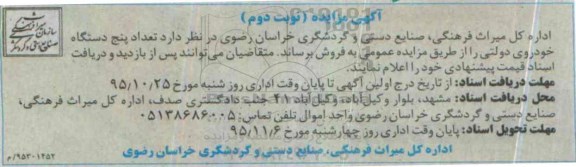 آگهی مزایده (نوبت دوم)
اداره کل میراث فرهنگی، صنایع دستی و گردشگری خراسان رضوی در نظر دارد تعداد پنج دستگاه
خودروی دولتی را از طریق مزایده عمومی به فروش برساند. متقاضیان می‌توانند پس از بازدید و دریافت
اسناد قیمت پیشنهادی خود را اعلام نمایند.
مهلت دریافت اسناد: از تاریخ درج اولین آگهی تا پایان وقت اداری روز شنبه مورخ ۹۵/۱۰/۲۵
محل دریافت اسناد: مشهد، بلوار وکیل‌آباد، وکیل‌آباد ۴۱ جنب دادگستری صدف، اداره کل میراث فرهنگی،
صنایع دستی و گردشگری خراسان رضوی واحد اموال تلفن تماس: ۰۵۱۳۸۶۸۶۰۰۵
مهلت تحویل اسناد: پایان وقت اداری روز چهارشنبه مورخ ۹۵/۱۱/۶
اداره کل میراث فرهنگی، صنایع دستی و گردشگری خراسان رضوی
۹۵۳۰۱۲۵۲/م